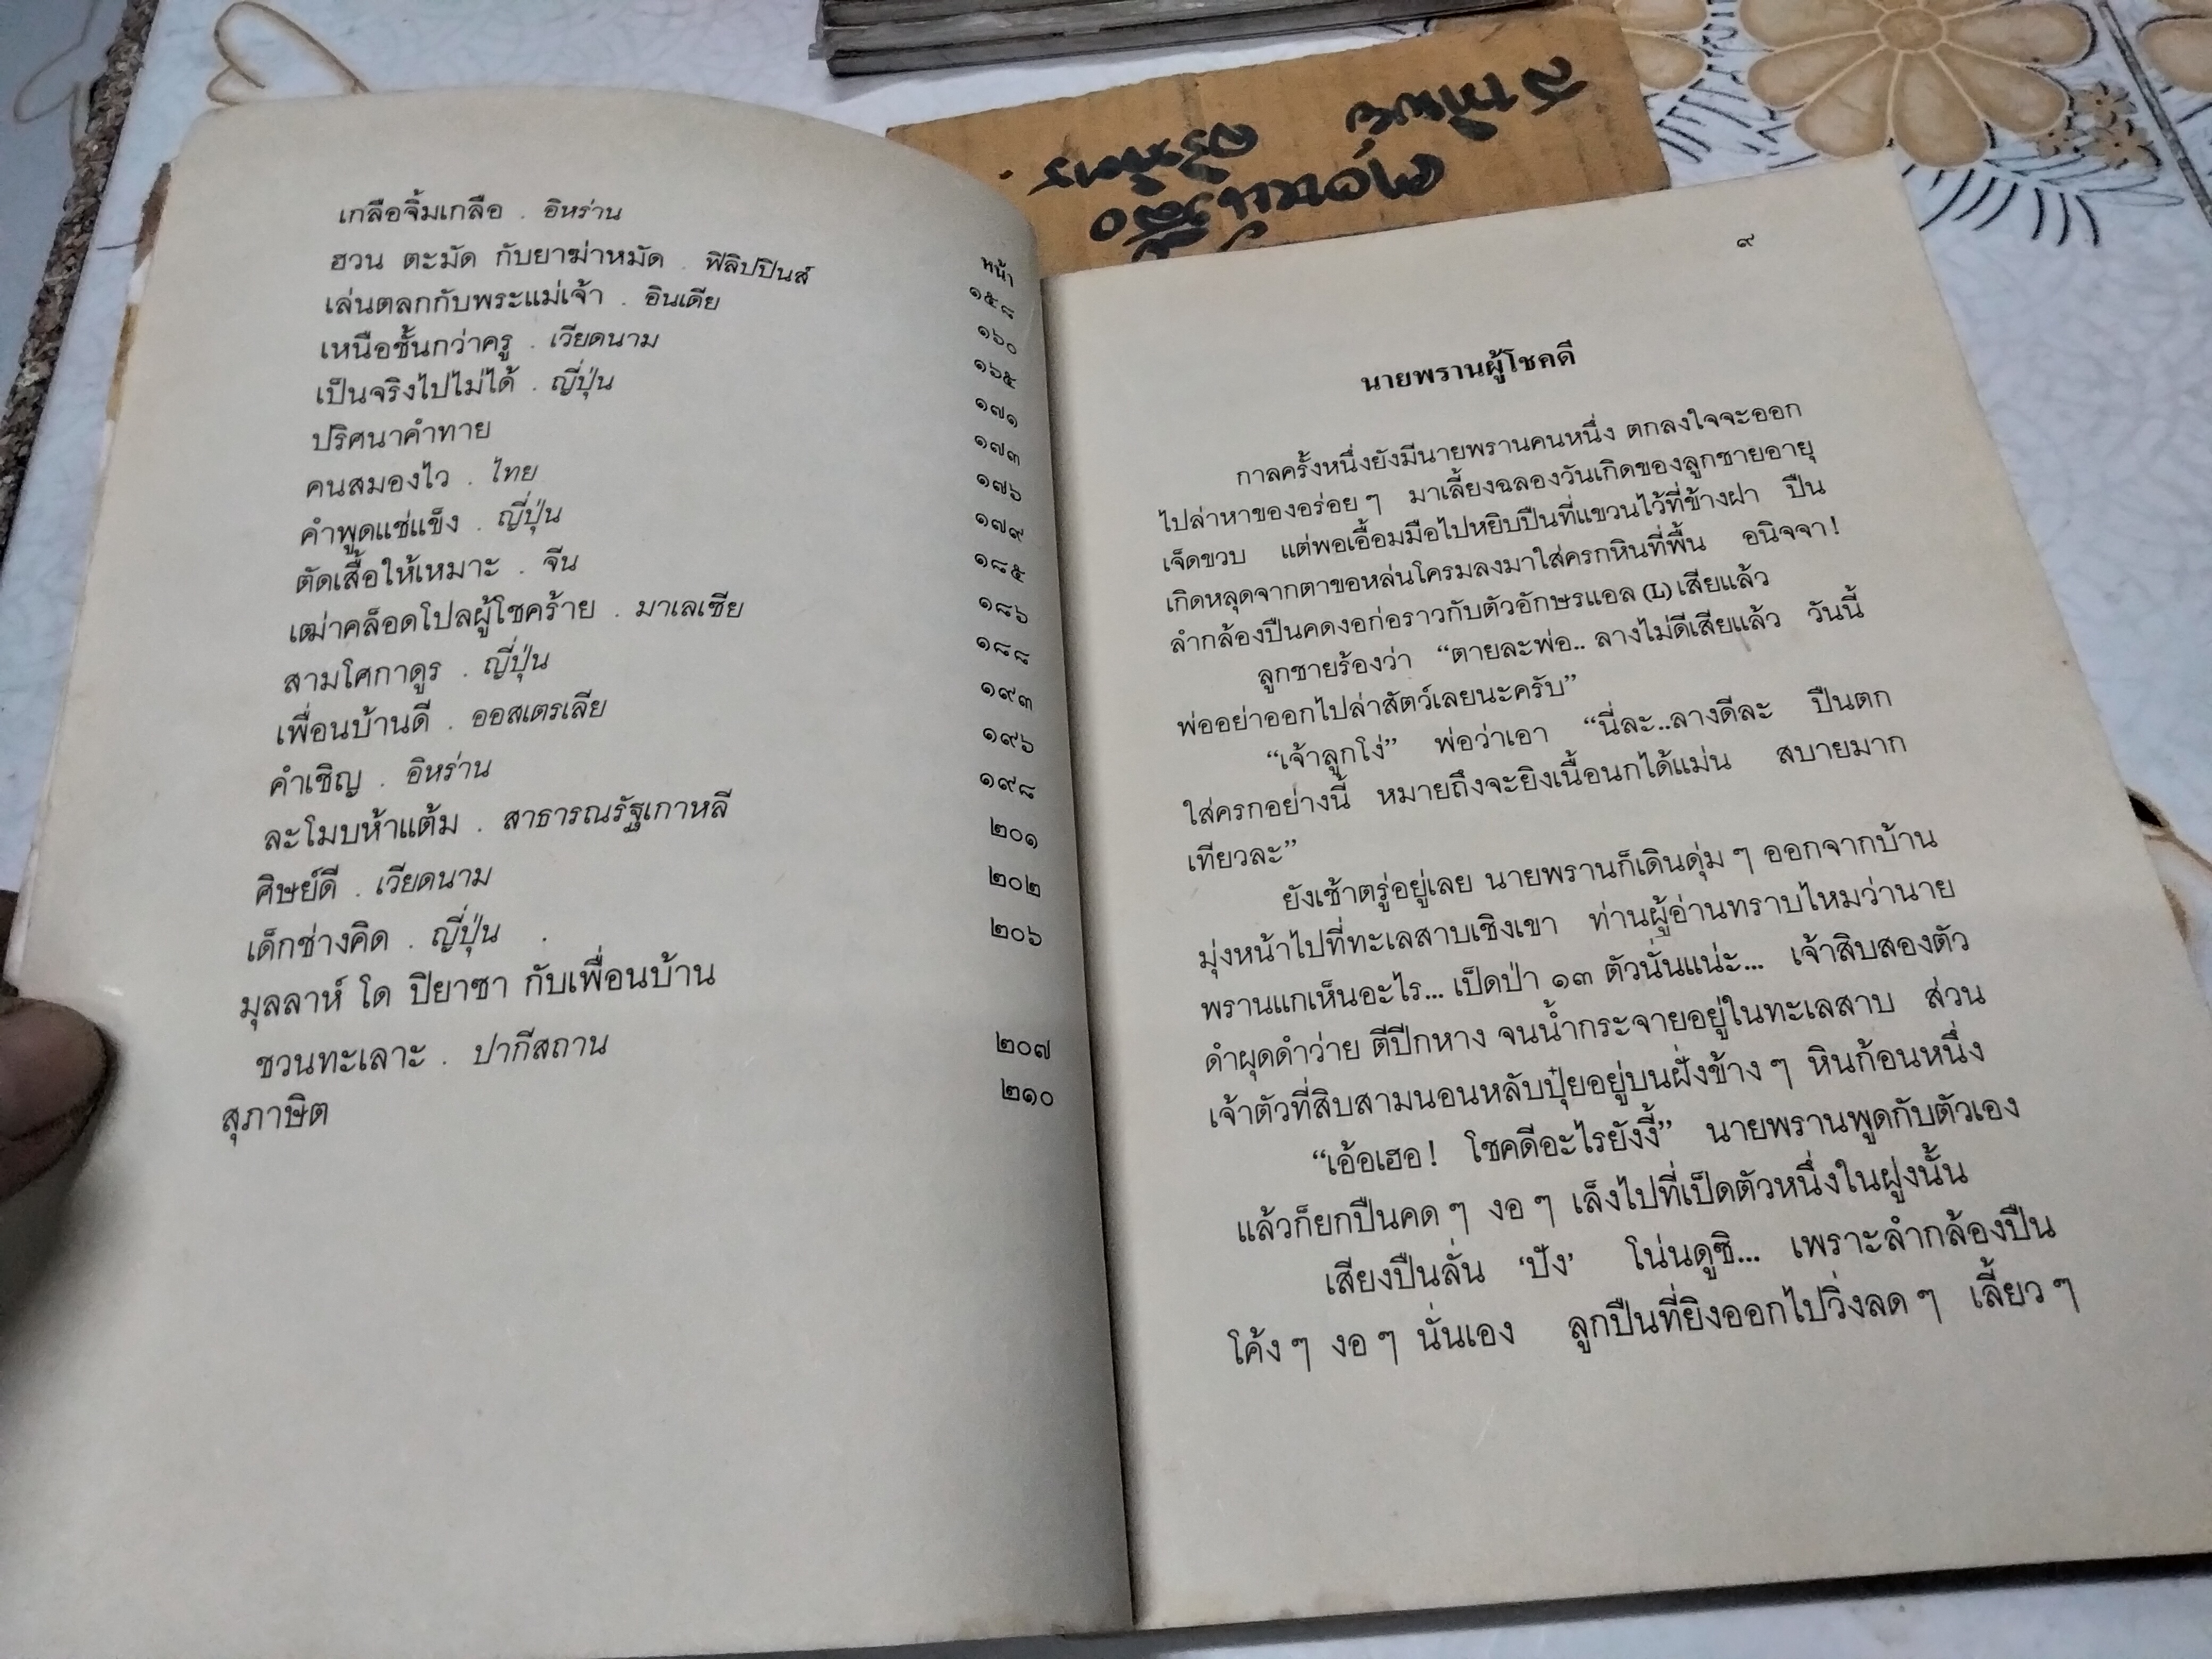 หน้า
เกลือจิ้มเกลือ . อิหร่าน ๑๕๘
ฮวน ตะมัด กับยาฆ่าหมัด . ฟิลิปปินส์ ๑๖๐
เล่นตลกกับพระแม่เจ้า . อินเดีย ๑๖๕
เหนือชั้นกว่าครู . เวียดนาม ๑๗๑
เป็นจริงไปไม่ได้ . ญี่ปุ่น ๑๗๓
ปริศนาคำทาย ๑๗๖
คนสมองไว . ไทย ๑๗๙
คำพูดแช่แข็ง . ญี่ปุ่น ๑๘๕
ตัดเสื้อให้เหมาะ . จีน ๑๘๖
เฒ่าคล็อดโปลผู้โชคร้าย . มาเลเซีย ๑๘๘
สามโศกาดูร . ญี่ปุ่น ๑๙๓
เพื่อนบ้านดี . ออสเตรเลีย ๑๙๖
คำเชิญ . อิหร่าน ๑๙๘
ละโมบห้าแต้ม . สาธารณรัฐเกาหลี ๒๐๑
ศิษย์ดี . เวียดนาม ๒๐๒
เด็กช่างคิด . ญี่ปุ่น ๒๐๖
มุลลาห์ โด ปิยาซา กับเพื่อนบ้าน
ชวนทะเลาะ . ปากีสถาน ๒๐๗
สุภาษิต ๒๑๐
๙
นายพรานผู้โชคดี
กาลครั้งหนึ่งยังมีนายพรานคนหนึ่ง ตกลงใจจะออก
ไปล่าหาของอร่อย ๆ มาเลี้ยงฉลองวันเกิดของลูกชายอายุ
เจ็ดขวบ แต่พอเอื้อมมือไปหยิบปืนที่แขวนไว้ที่ข้างฝา ปืน
เกิดหลุดจากตาขอหล่นโครมลงมาใส่ครกหินที่พื้น อนิจจา!
ลำกล้องปืนคดงอก่อราวกับตัวอักษรแอล (L) เสียแล้ว
ลูกชายร้องว่า “ตายละพ่อ.. ลางไม่ดีเสียแล้ว วันนี้
พ่ออย่าออกไปล่าสัตว์เลยนะครับ”
“เจ้าลูกโง่” พ่อว่าเอา “นี่ละ..ลางดีละ ปืนตก
ใส่ครกอย่างนี้ หมายถึงจะยิงเนื้อนกได้แม่น สบายมาก
เทียวละ”
ยังเช้าตรู่อยู่เลย นายพรานก็เดินดุ่ม ๆ ออกจากบ้าน
มุ่งหน้าไปที่ทะเลสาบเชิงเขา ท่านผู้อ่านทราบไหมว่านาย
พรานแกเห็นอะไร... เป็ดป่า ๑๓ ตัวนั่นแน่ะ... เจ้าสิบสองตัว
ดำผุดดำว่าย ตีปีกหาง จนน้ำกระจายอยู่ในทะเลสาบ ส่วน
เจ้าตัวที่สิบสามนอนหลับปุ๋ยอยู่บนฝั่งข้าง ๆ หินก้อนหนึ่ง
“เอ้อเฮอ! โชคดีอะไรยังงี้” นายพรานพูดกับตัวเอง
แล้วก็ยกปืนคด ๆ งอ ๆ เล็งไปที่เป็ดตัวหนึ่งในฝูงนั้น
เสียงปืนลั่น ‘ปัง’ โน่นดูซิ... เพราะลำกล้องปืน
โค้ง ๆ งอ ๆ นั่นเอง ลูกปืนที่ยิงออกไปวิ่งลด ๆ เลี้ยว ๆ